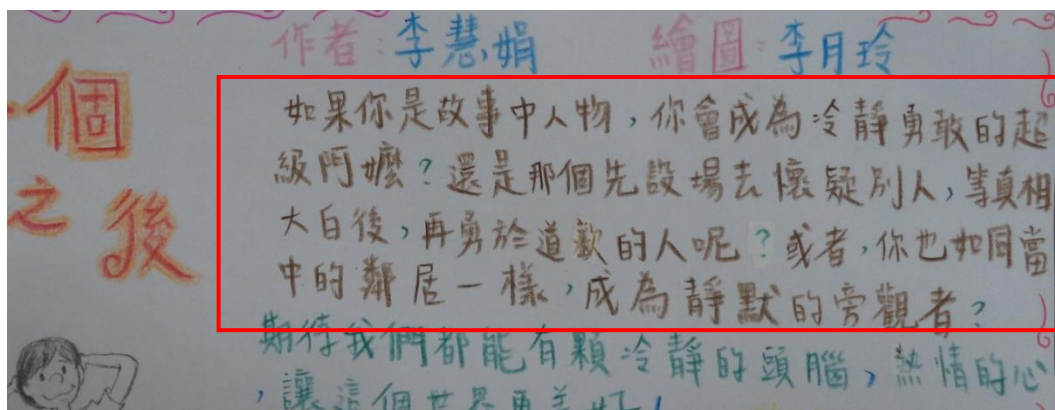 作者:李慧娟 繪圖:李月玲
個
之後
如果你是故事中人物,你會成為冷靜勇敢的超
級阿嬤?還是那個先設場去懷疑別人,等真相
大白後,再勇於道歉的人呢?或者,你也如同當
中的鄰居一樣,成為靜默的旁觀者?
期待我們都能有顆冷靜的頭腦,熱情的心
,讓這個世界更美好!